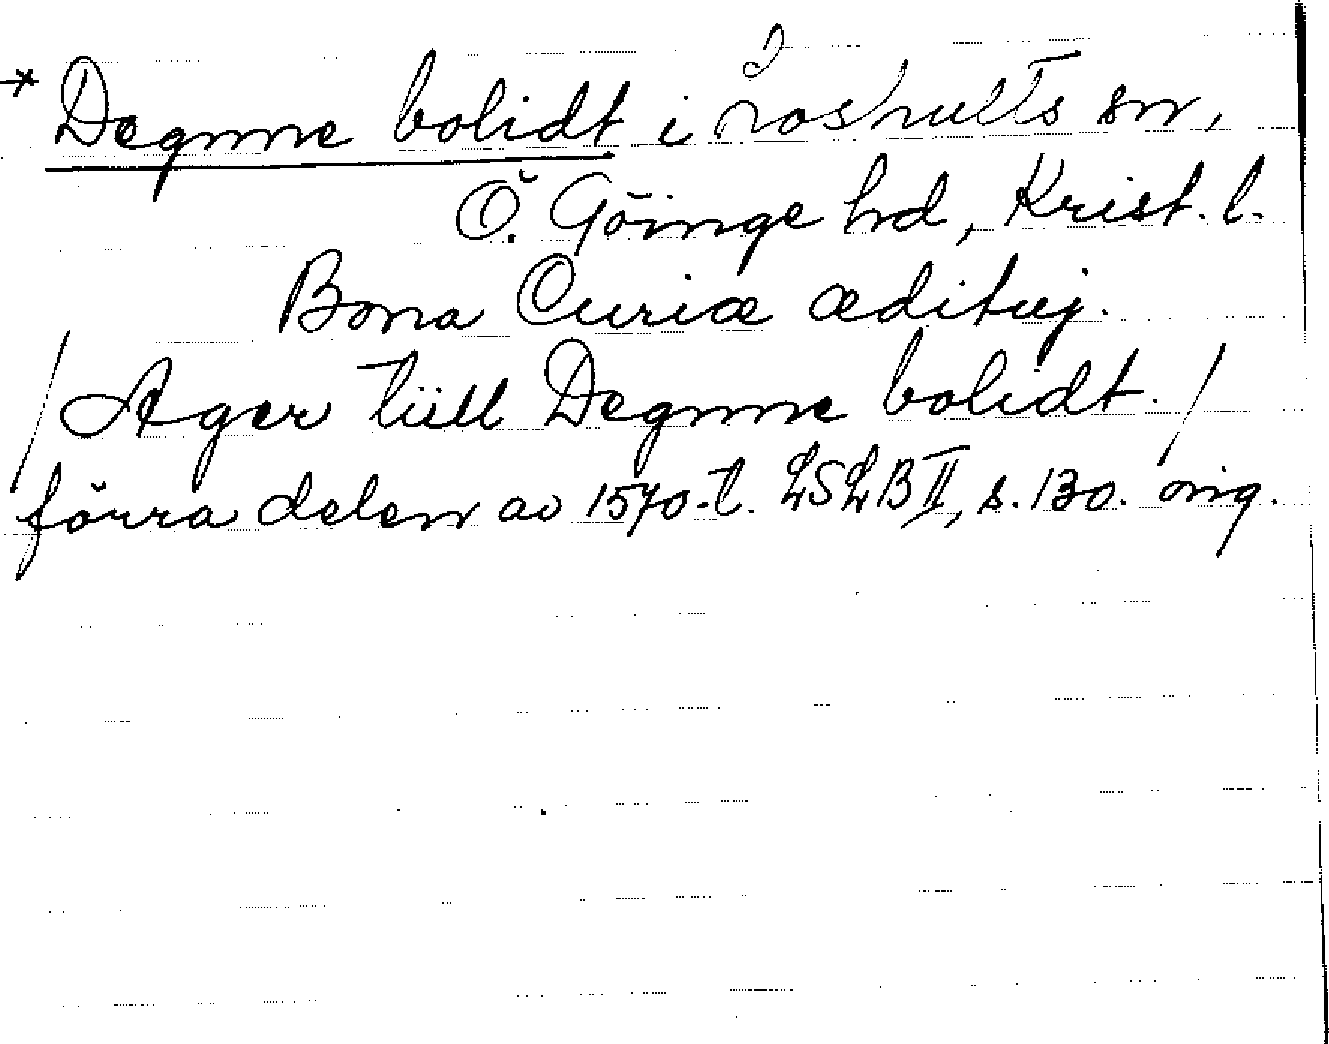 * Degnne bolidt i Broshults sn,
Ö. Göinge hd, Krist. l.
Bona Curiæ ædituj.
/Ager tiill Degnne bolidt./
förra delen av 1570-t. LSLB II, s. 130. orig.